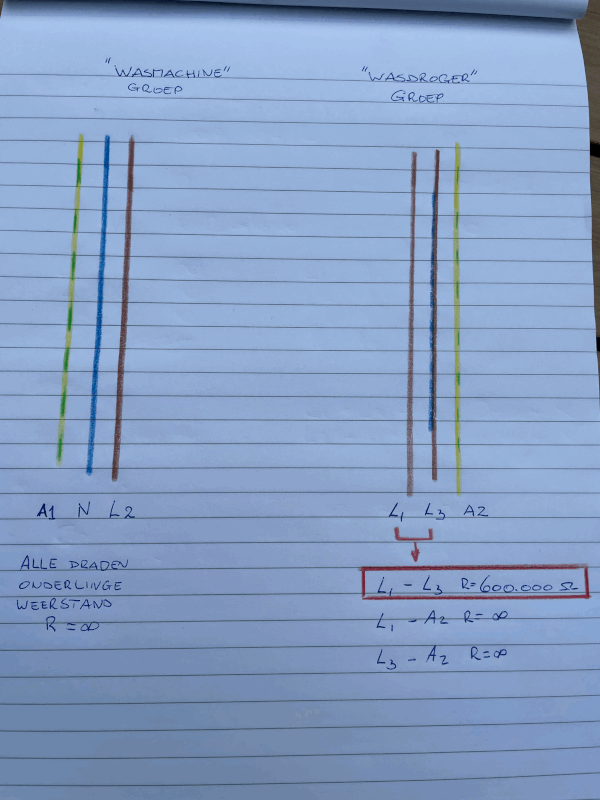 "WASMACHINE"
GROEP
"WASDROGER"
GROEP
A1 N L2
L1 L3 A2
ALLE DRADEN
ONDERLINGE
WEERSTAND
R = ∞
L1 - L3 R = 600.000 Ω
L1 - A2 R = ∞
L3 - A2 R = ∞